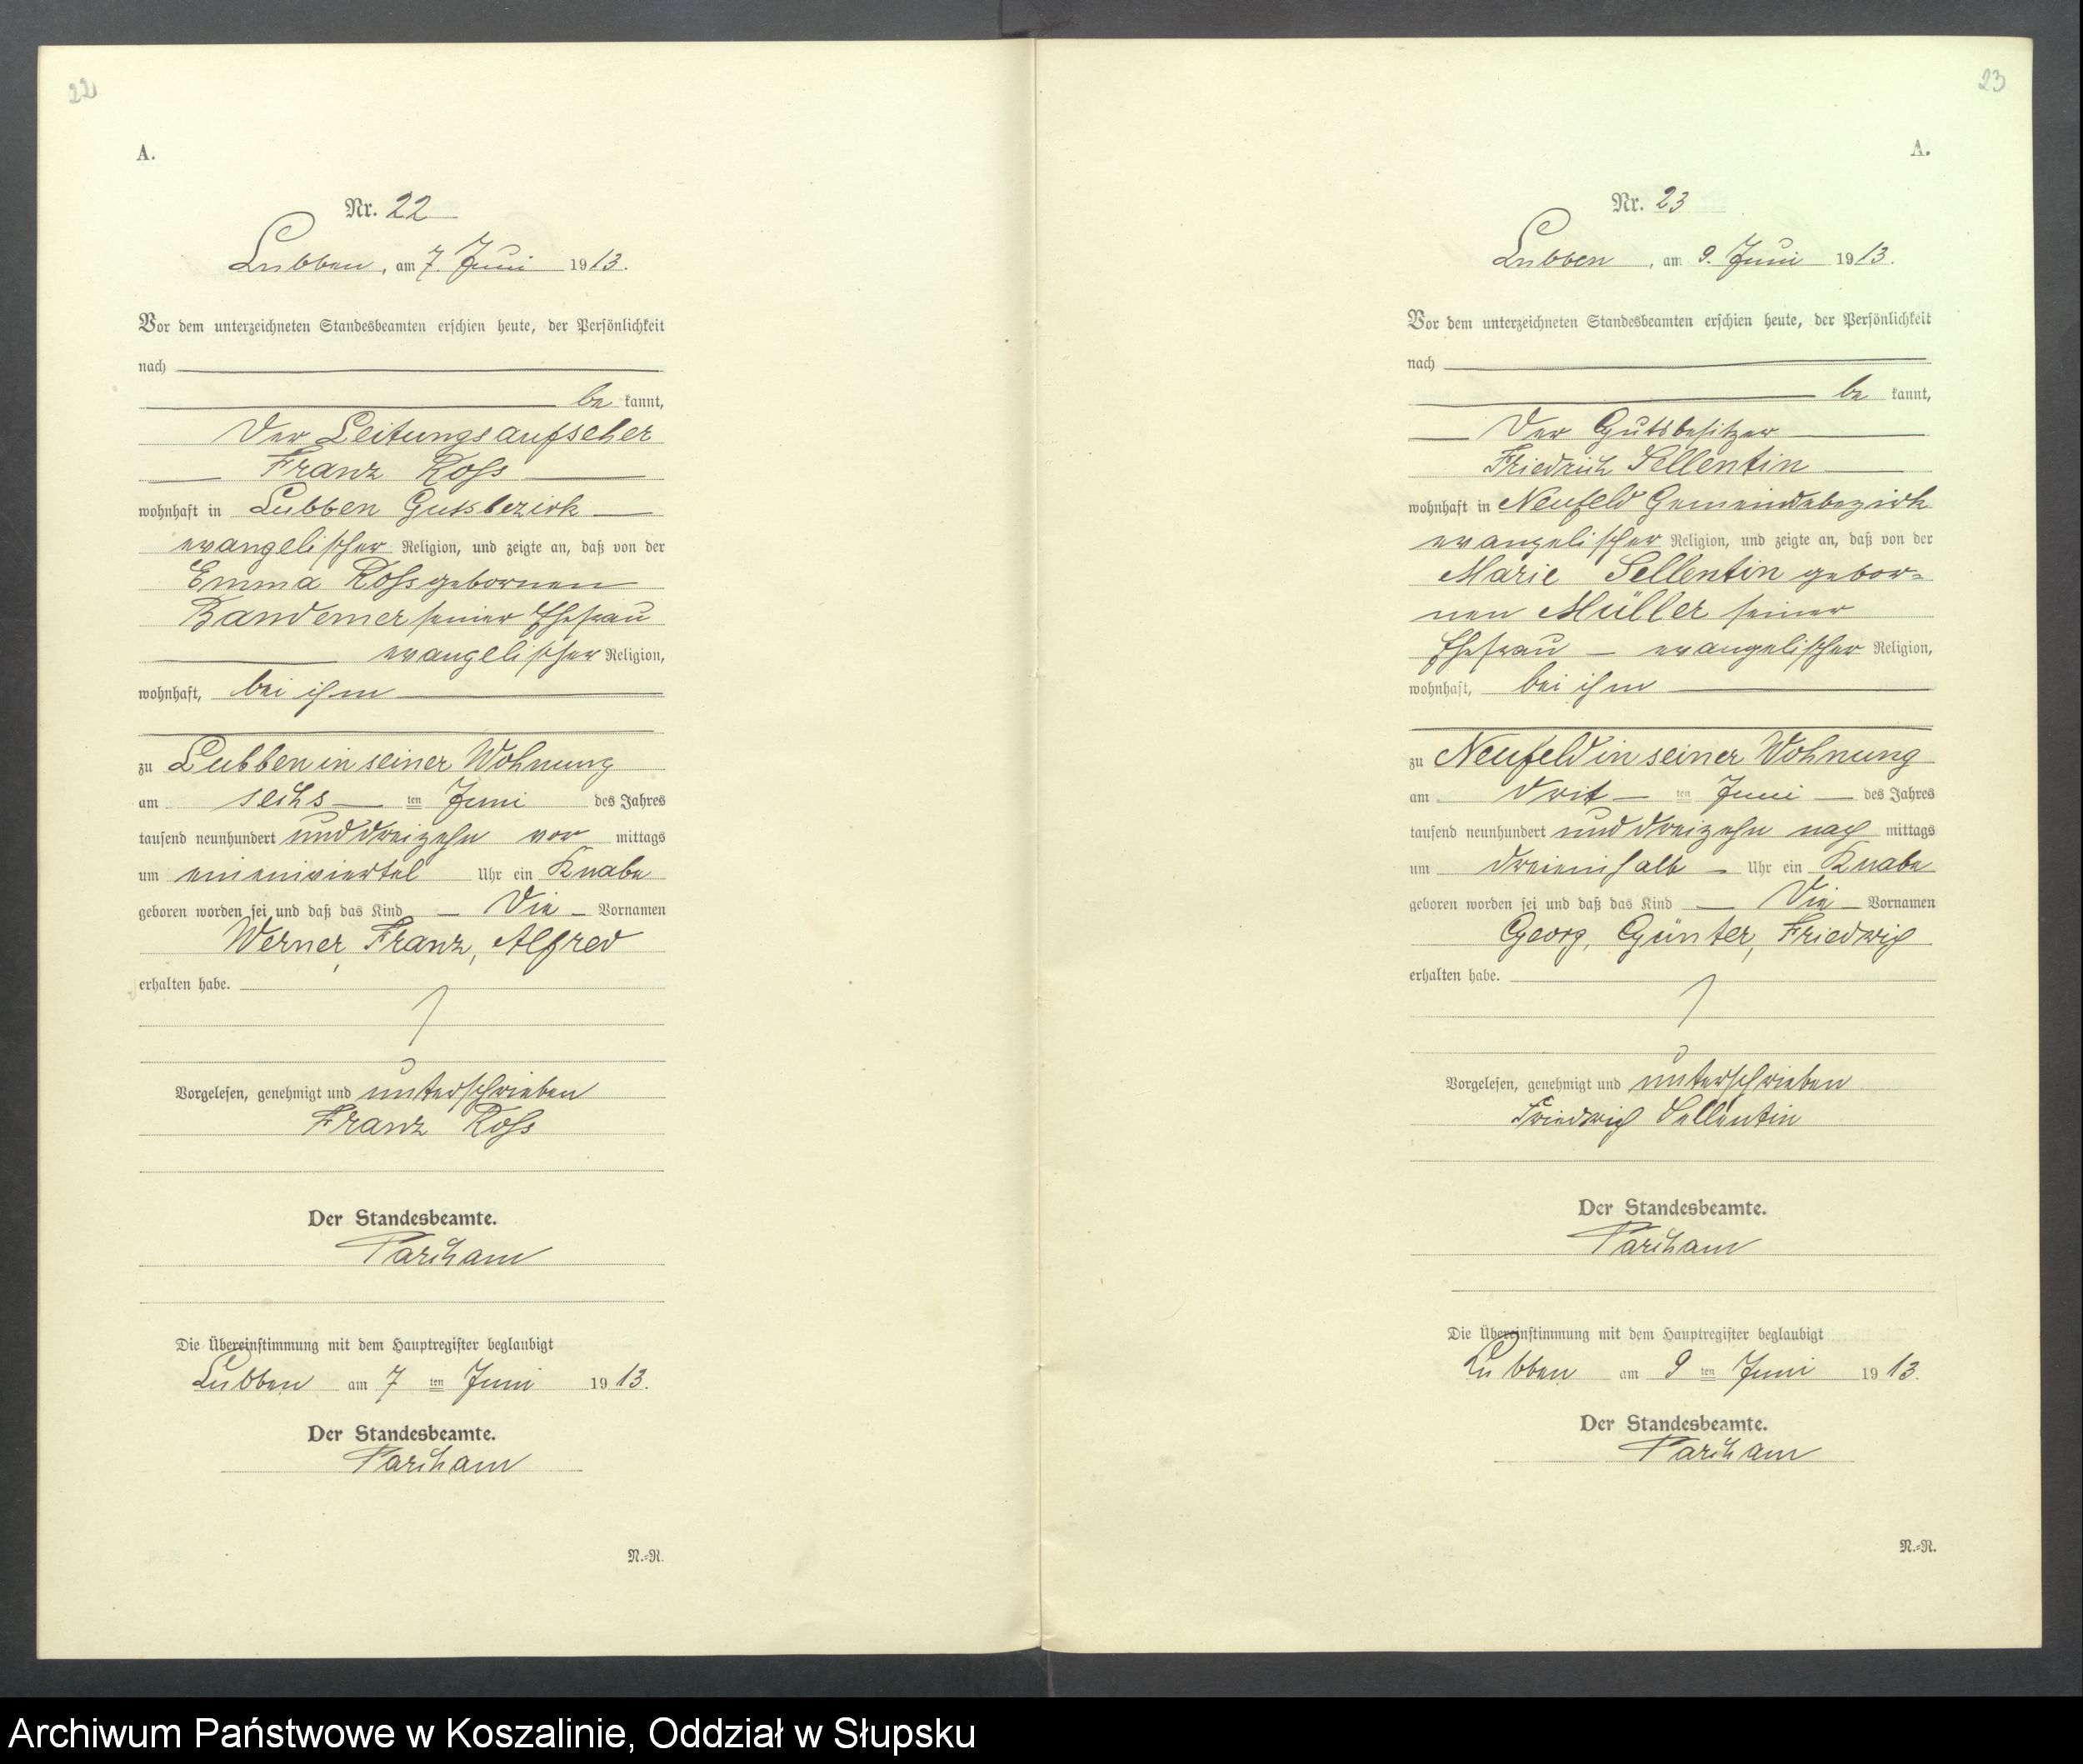 22
A.
Nr. 22
Lubben, am 7. Juni 1913.
Vor dem unterzeichneten Standesbeamten erschien heute, der Persönlichkeit
nach
be kannt,
der Leitungsaufseher
Franz Roß
wohnhaft in Lubben Gutsbezirk
evangelischer Religion, und zeigte an, daß von der
Emma Roß gebornen
Bandemer seiner Ehefrau
evangelischer Religion,
wohnhaft, bei ihm
zu Lubben in seiner Wohnung
am sechs ten Juni des Jahres
tausend neunhundert und dreizehn vor mittags
um Uhr ein Knabe
geboren worden sei und daß das Kind die Vornamen
Werner, Franz, Alfred
erhalten habe.
Vorgelesen, genehmigt und unterschrieben
Franz Roß
Der Standesbeamte.
Parcham
Die Übereinstimmung mit dem Hauptregister beglaubigt
Lubben am 7 ten Juni 1913.
Der Standesbeamte.
Parcham
N.=R.
23
A.
Nr. 23
Lubben, am 9. Juni 1913.
Vor dem unterzeichneten Standesbeamten erschien heute, der Persönlichkeit
nach
be kannt,
der Gutsbesitzer
Friedrich Sellentin
wohnhaft in Neufeld Gemeindebezirk
evangelischer Religion, und zeigte an, daß von der
Marie Sellentin gebor=
nen Müller seiner
Ehefrau evangelischer Religion,
wohnhaft, bei ihm
zu Neufeld in seiner Wohnung
am drit ten Juni des Jahres
tausend neunhundert und dreizehn nach mittags
um dreieinhalb Uhr ein Knabe
geboren worden sei und daß das Kind die Vornamen
Georg, Günter, Friedrich
erhalten habe.
Vorgelesen, genehmigt und unterschrieben
Friedrich Sellentin
Der Standesbeamte.
Parcham
Die Übereinstimmung mit dem Hauptregister beglaubigt
Lubben am 9 ten Juni 1913.
Der Standesbeamte.
Parcham
N.=R.
Archiwum Państwowe w Koszalinie, Oddział w Słupsku